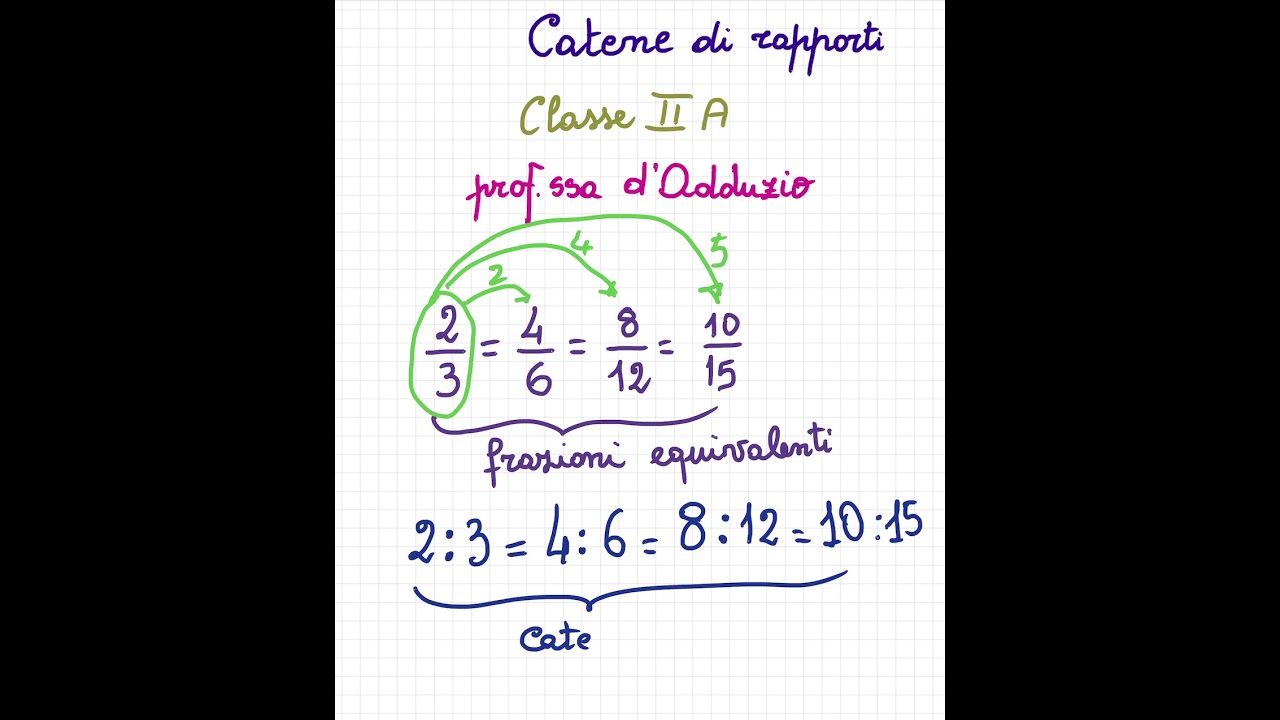 Catene di rapporti
Classe II A
prof.ssa d'Adduzio
2 4 5
2/3 = 4/6 = 8/12 = 10/15
frazioni equivalenti
2:3 = 4:6 = 8:12 = 10:15
Cate